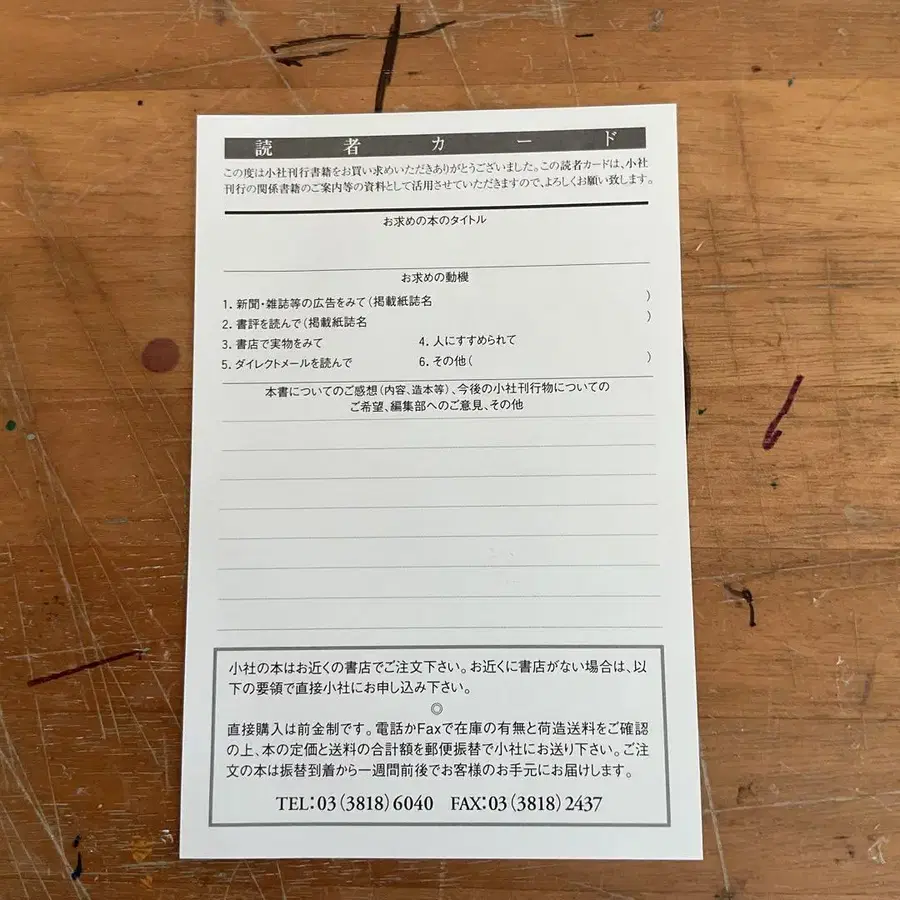 読者カード
この度は小社刊行書籍をお買い求めいただきありがとうございました。この読者カードは、小社
刊行の関係書籍のご案内等の資料として活用させていただきますので、よろしくお願い致します。
お求めの本のタイトル
お求めの動機
1. 新聞・雑誌等の広告をみて(掲載紙誌名　　　　　　　　　　)
2. 書評を読んで(掲載紙誌名　　　　　　　　　　)
3. 書店で実物をみて　　4. 人にすすめられて
5. ダイレクトメールを読んで　　6. その他(　　　　　　　　　　)
本書についてのご感想(内容、造本等)、今後の小社刊行物についての
ご希望、編集部へのご意見、その他
小社の本はお近くの書店でご注文下さい。お近くに書店がない場合は、以
下の要領で直接小社にお申し込み下さい。
◎
直接購入は前金制です。電話かFaxで在庫の有無と荷造送料をご確認
の上、本の定価と送料の合計額を郵便振替で小社にお送り下さい。ご注
文の本は振替到着から一週間前後でお客様のお手元にお届けします。
TEL:03(3818)6040　FAX:03(3818)2437